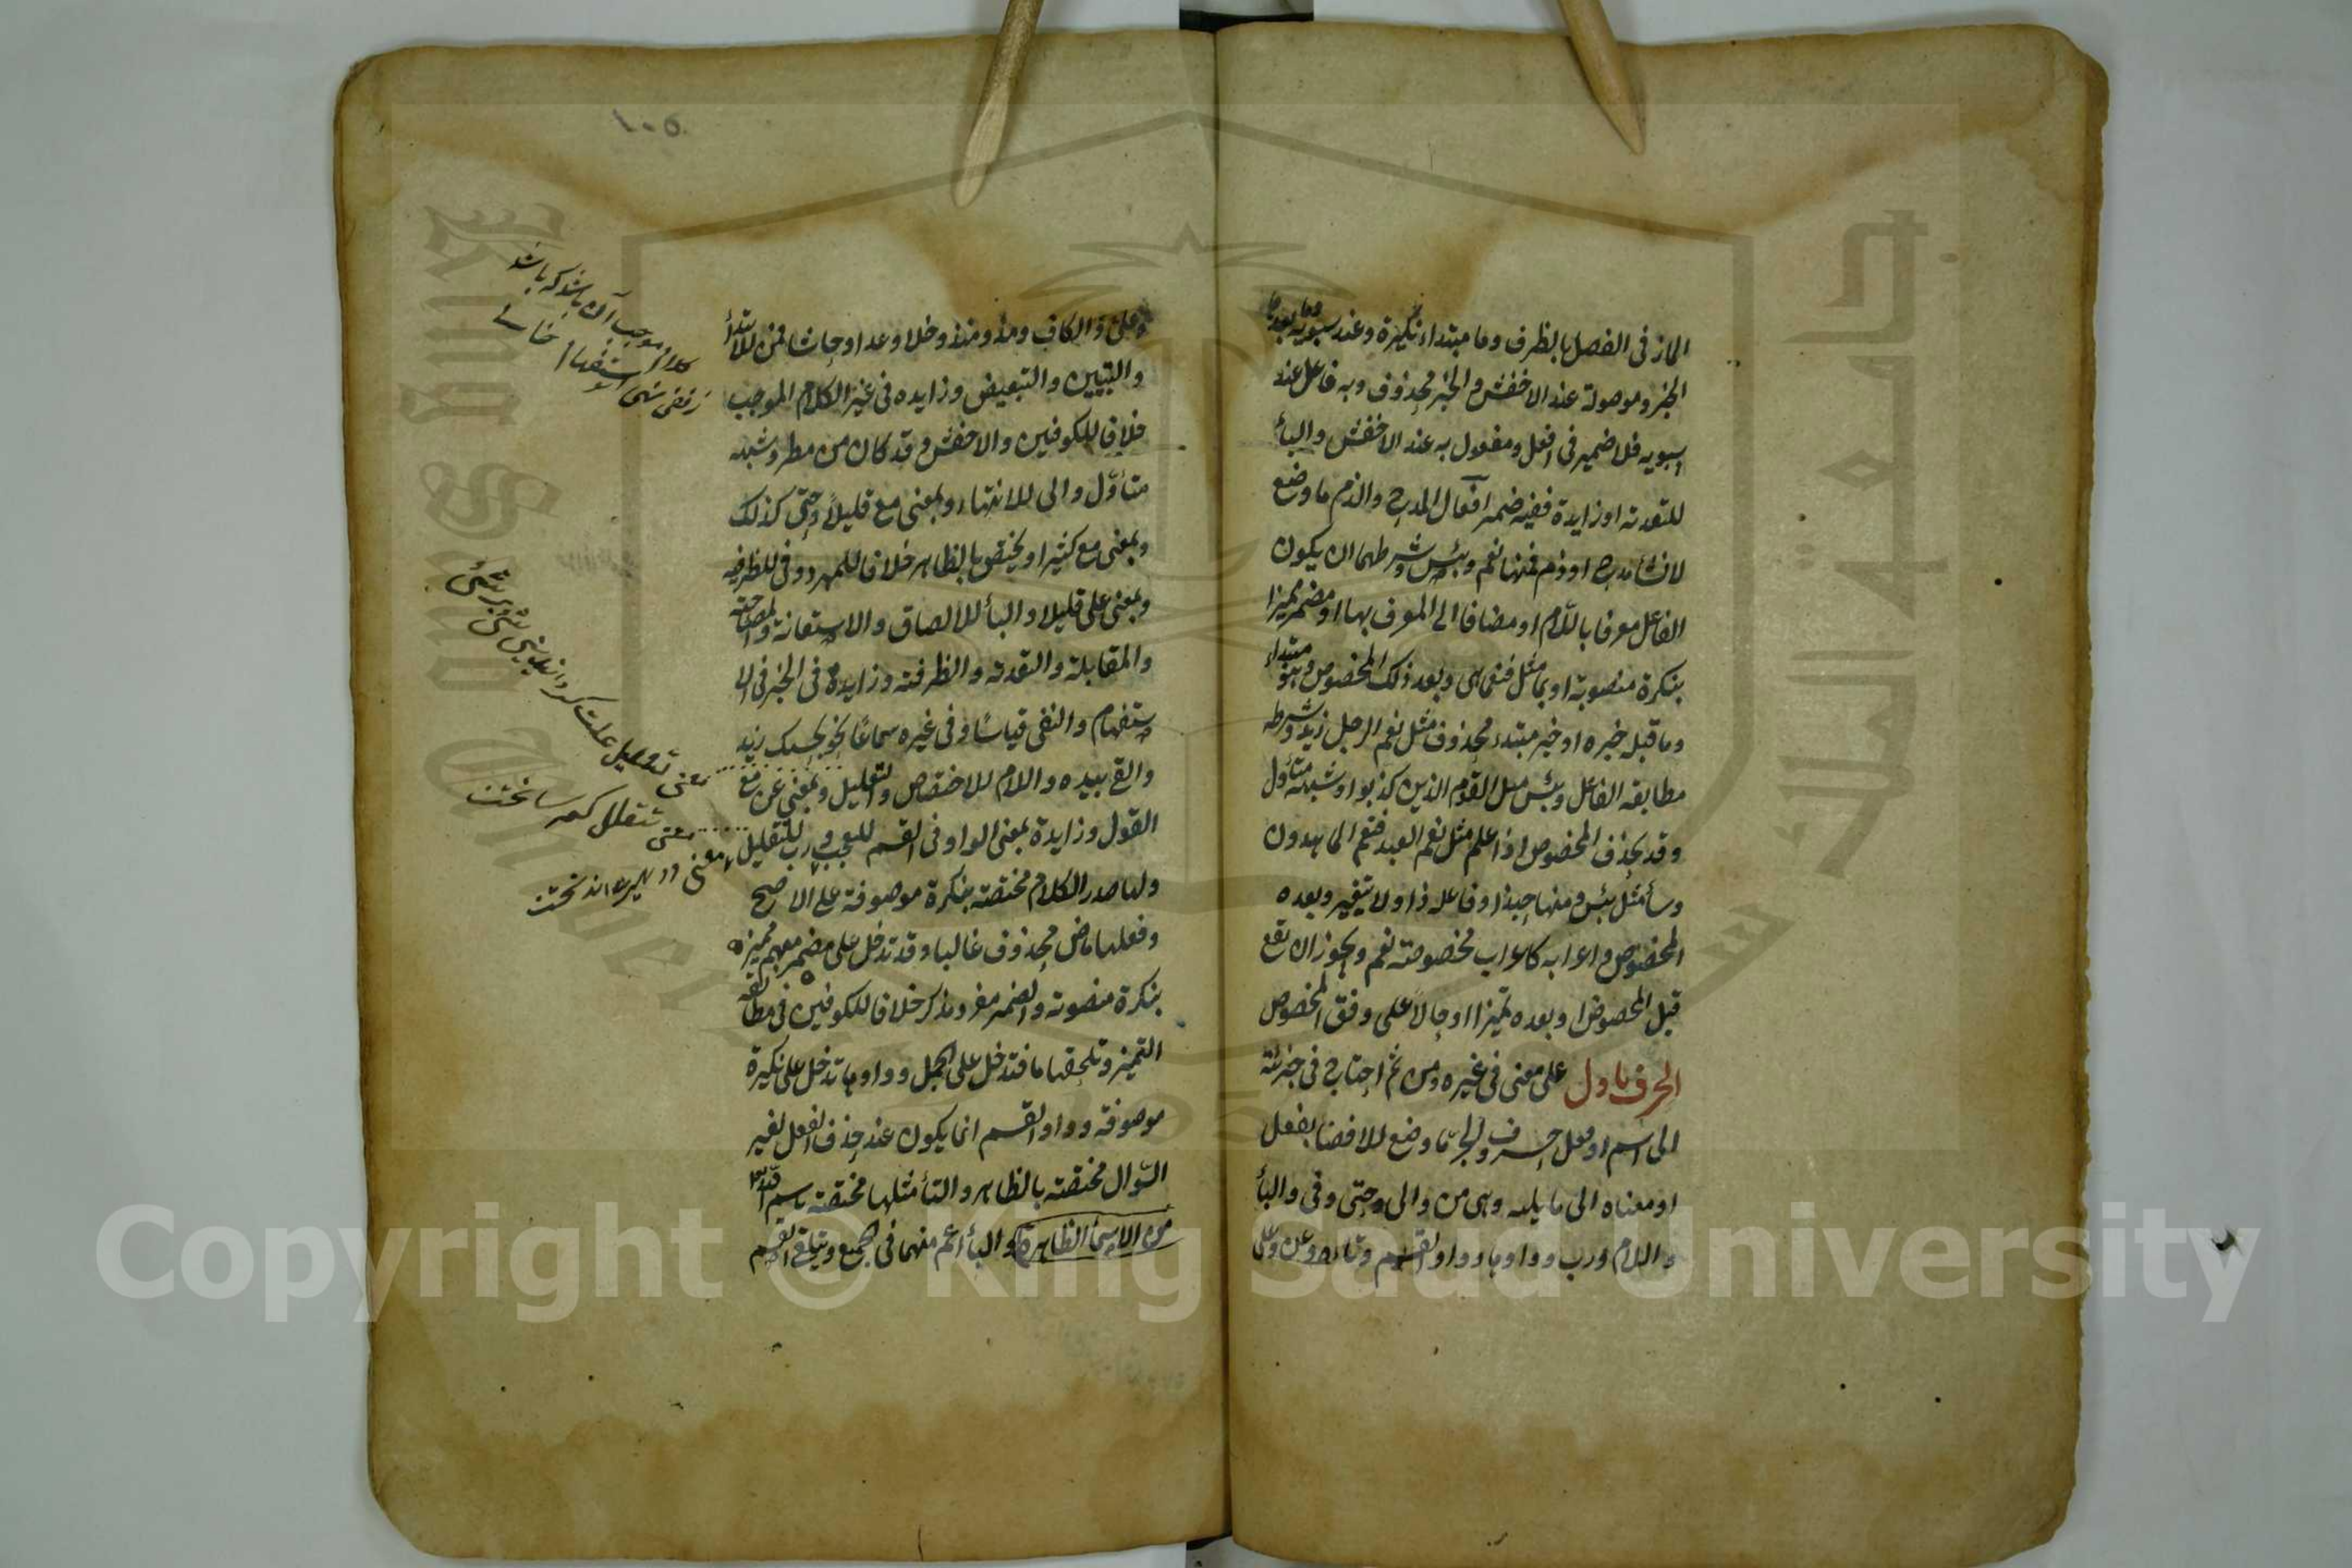 المازنى الفصل بالظرف وما مبتداء نكيرة وعند سيبويه وما بعدها
الخبر وموصولة عند الاخفش والخبر محذوف وبه فاعل عند
سبويه فلا ضمير فى افعل ومفعول به عند الاخفش والبأ
للتعدته او زايدة ففيه ضمير افعال المدح والذم ما وضع
لانشأ مدح او ذم فمنها نعم وبئس وشرطهما ان يكون
الفاعل معرفا باللّام او مضافا الى المعرف بها او مضمر مميزا
بنكرة منصوبة او بما مثل فنعما هى وبعد ذلك المخصوص وهو مبتداء
وما قبله خبره او خبر مبتدء محذوف مثل نعم الرجل زيد وشرطه
مطابقه الفاعل وبئس مثل القوم الذين كذبوا وشبهه متأول
وقد يحذف المخصوص اذا علم مثل نعم العبد فنعم الماهدون
وسأ مثل بئس ومنها حبذا وفاعله ذا ولا يتغير وبعده
المخصوص واعرابه كاعراب مخصوصته نعم ويجوز ان يقع
قبل المخصوص او بعده تميزا او حالا على وفق المخصوص
الحرف ما دل على معنى فى غيره ومن ثم احتاج فى جزئيّة
الى اسم او فعل حرف الجر ما وضع للافضا بفعل
او معناه الى ما يليه وهى من والى وحتى وفى والبأ
واللام ورب وواوها وواو القسم وتاءه وعن وعلى
وعلى والكاف ومذ ومنذ وخلا وعدا وحاشا فمن للابتدأ
والتبيين والتبعيض وزايده فى غير الكلام الموجب
خلافا للكوفيين والاخفش وقد كان من مطر وشبهه
متأوّل والى للانتهاء وبمعنى مع قليلاً وحتى كذلك
وبمعنى مع كثيرا ويختص بالظاهر خلافا للمبرد وفى للظرفيه
وبمعنى على قليلا والبأ للالصاق والاستعانة والمصاحبة
والمقابلة والتعدته والظرفته وزايدة فى الخبر فى الا
ستفهام والنفى قياسًا وفى غيره سماعًا نحو بحسبك زيد
والقى بيده واللام للاختصاص والتعليل وبمعنى عن مع
القول وزايدة بمعنى الواو فى القسم للتعجب ورب للتقليل
ولها صدر الكلام مختصته بنكرة موصوفة على الاصح
وفعلها ماض محذوف غالبا وقد تدخل على مضمر مبهم مميزه
بنكرة منصوته والضمير مفرد مذكر خلافا للكوفيين فى مطابقه
التميز وتلحقها ما فتدخل على الجمل وواوها تدخل على نكيرة
موصوفة وواو القسم انما يكون عند حذف الفعل لغير
السّوال مختصته بالظاهر والتأ مثلها مختصته باسم اللّه
من الاسمأ الظاهرة والبأ اعم منهما فى الجميع ويتلقى القسم
كلام موجب آن باشد كه باشد
معنى تعليل علت كردانيدن
معنى تقليل كم ساختن
١٠٥
Copyright © King Saud University